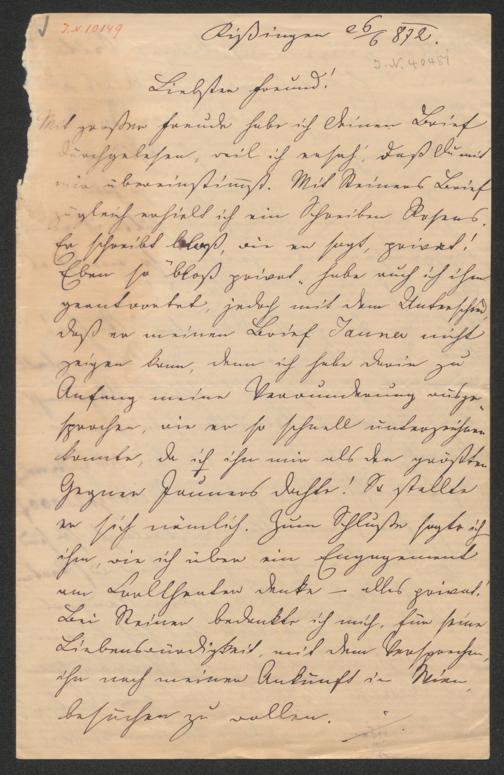 J.N. 10149
Kißingen 26/6 872.
J.N. 40481
Liebster Freund!
Mit großer Freude habe ich Deinen Brief
durchgelesen, weil ich ersah, daß Du mit
mir übereinstimmst. Mit Steiners Brief
zugleich erhielt ich ein Schreiben Rosens.
Er schreibt bloß, wie er sagt, privat!
Eben so "bloß privat" habe auch ich ihm
geantwortet, jedoch mit dem Unterschied,
daß er meinen Brief Jauner nicht
zeigen kann, denn ich habe darin zu
Anfang meine Verwunderung ausge-
sprochen, wie er so schnell unterzeichnen
konnte, da ich ihn mir als den größten
Gegner Jauners dachte! So stellte
er sich nämlich. Zum Schluße sagte ich
ihm, wie ich über ein Engagement
am Carltheater denke – alles privat!
Bei Steiner bedankte ich mich, für seine
Liebenswürdigkeit, mit dem Versprechen,
ihn nach meiner Ankunft in Wien,
besuchen zu wollen.